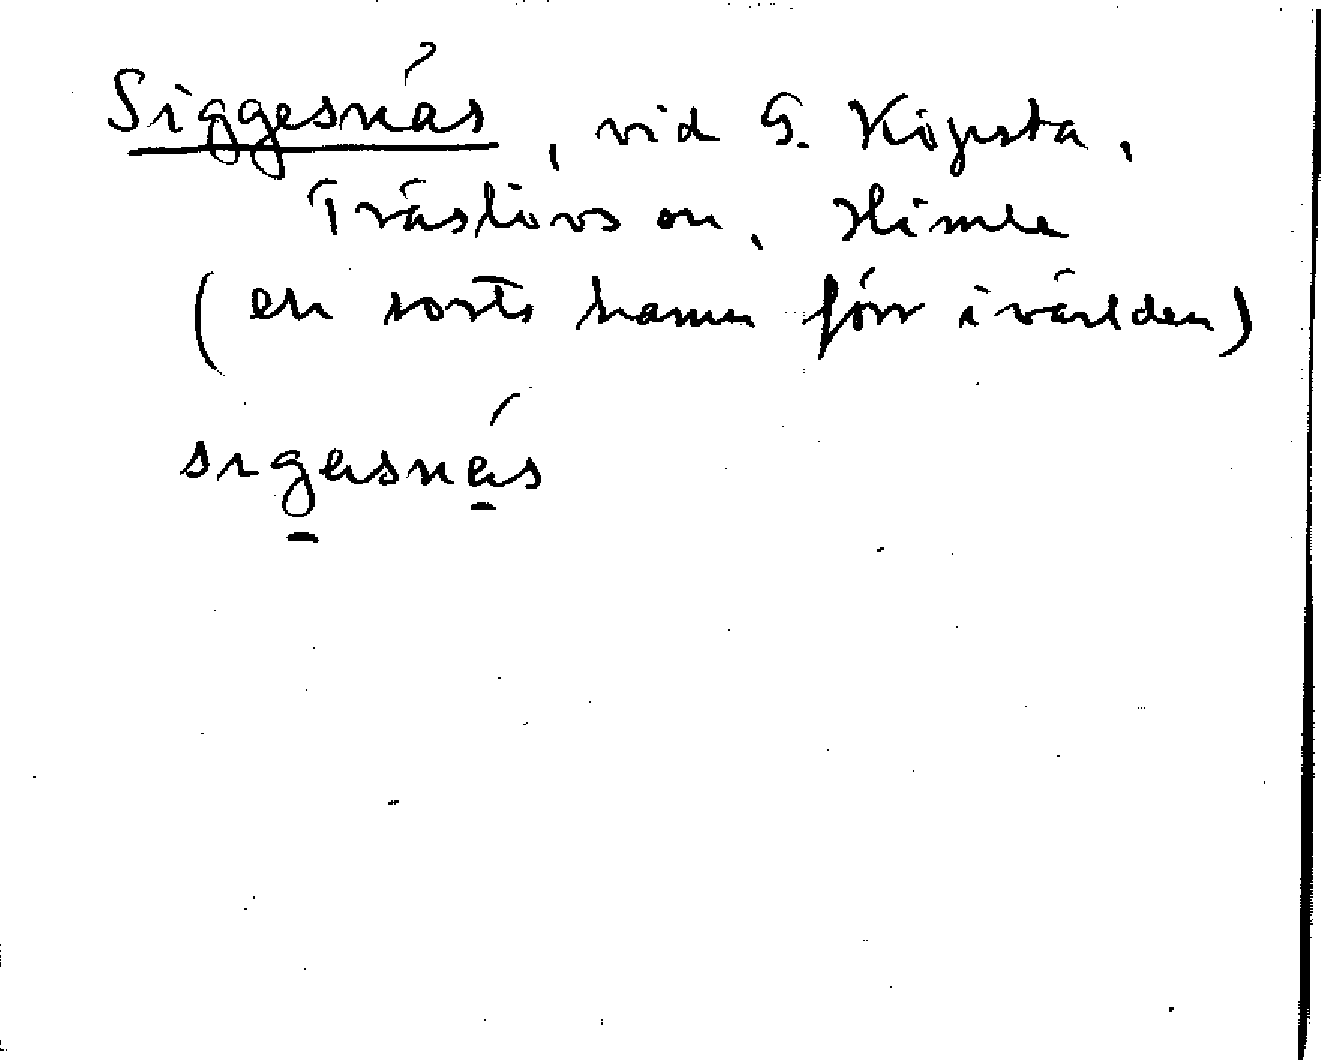 Siggesnäs, vid G. Köpsta,
Träslövs sn, Himle
(en sorts hamn förr i världen)
sigasnäs